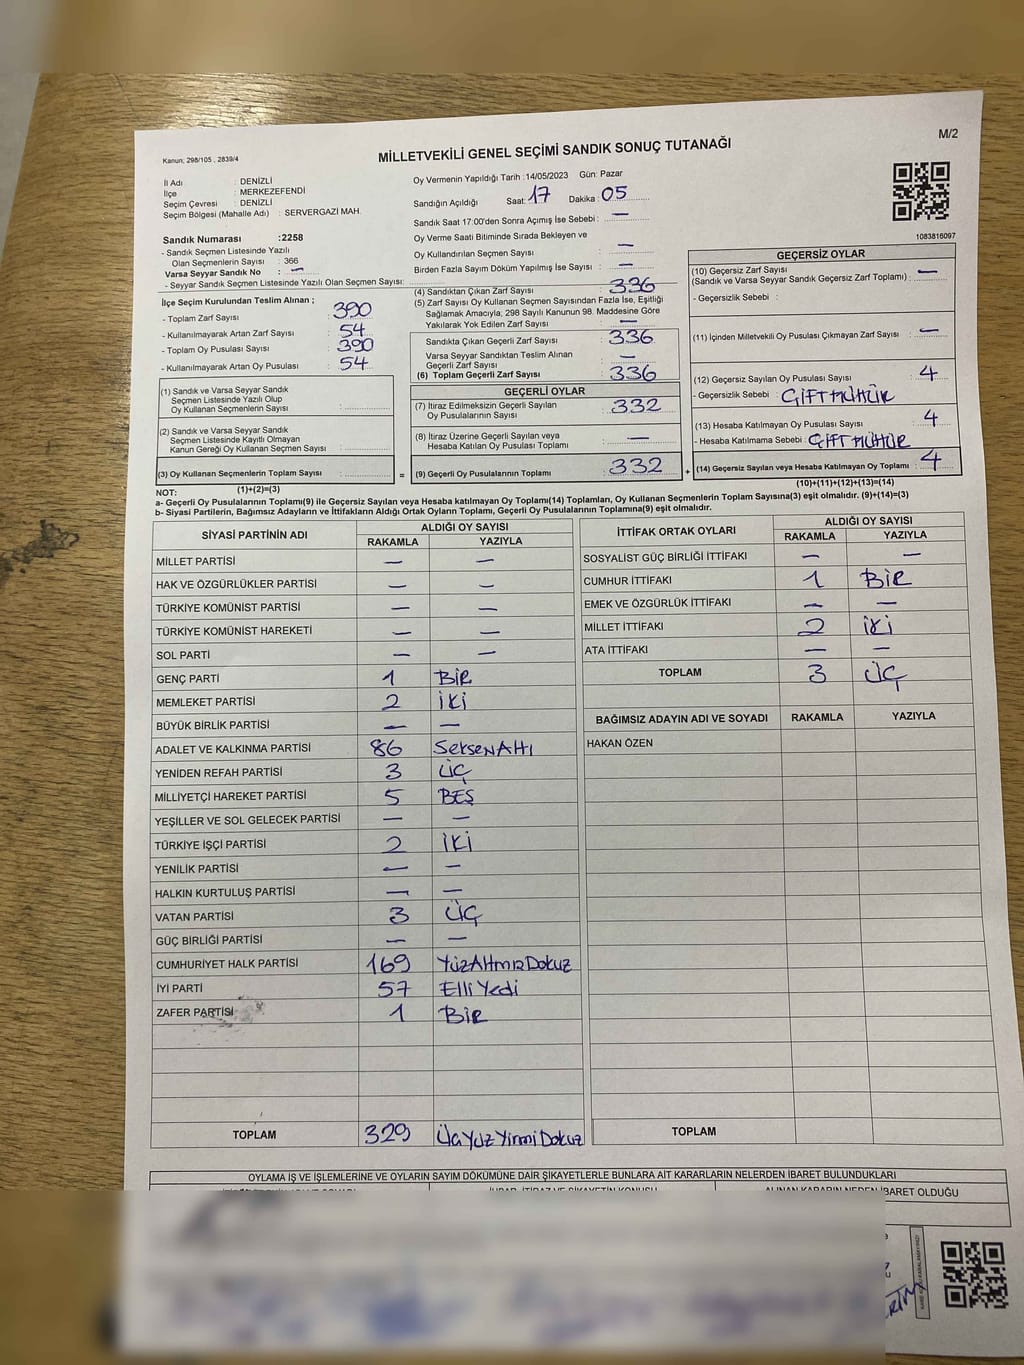 M/2
Kanun; 298/105 , 2839/4
MİLLETVEKİLİ GENEL SEÇİMİ SANDIK SONUÇ TUTANAĞI
İl Adı : DENİZLİ
İlçe : MERKEZEFENDİ
Seçim Çevresi : DENİZLİ
Seçim Bölgesi (Mahalle Adı) : SERVERGAZİ MAH.
Sandık Numarası :2258
- Sandık Seçmen Listesinde Yazılı
Olan Seçmenlerin Sayısı : 366
Varsa Seyyar Sandık No : —
- Seyyar Sandık Seçmen Listesinde Yazılı Olan Seçmen Sayısı:
İlçe Seçim Kurulundan Teslim Alınan ;
- Toplam Zarf Sayısı : 390
- Kullanılmayarak Artan Zarf Sayısı : 54
- Toplam Oy Pusulası Sayısı : 390
- Kullanılmayarak Artan Oy Pusulası : 54
(1) Sandık ve Varsa Seyyar Sandık
Seçmen Listesinde Yazılı Olup
Oy Kullanan Seçmenlerin Sayısı :
(2) Sandık ve Varsa Seyyar Sandık
Seçmen Listesinde Kayıtlı Olmayan
Kanun Gereği Oy Kullanan Seçmen Sayısı :
(3) Oy Kullanan Seçmenlerin Toplam Sayısı :
(1)+(2)=(3)
Oy Vermenin Yapıldığı Tarih :14/05/2023 Gün: Pazar
Sandığın Açıldığı Saat: 17 Dakika : 05
Sandık Saat 17:00'den Sonra Açımış İse Sebebi : —
Oy Verme Saati Bitiminde Sırada Bekleyen ve
Oy Kullandırılan Seçmen Sayısı : —
Birden Fazla Sayım Döküm Yapılmış İse Sayısı : —
(4) Sandıktan Çıkan Zarf Sayısı : 336
(5) Zarf Sayısı Oy Kullanan Seçmen Sayısından Fazla İse, Eşitliği
Sağlamak Amacıyla; 298 Sayılı Kanunun 98. Maddesine Göre
Yakılarak Yok Edilen Zarf Sayısı : —
Sandıkta Çıkan Geçerli Zarf Sayısı : 336
Varsa Seyyar Sandıktan Teslim Alınan
Geçerli Zarf Sayısı : —
(6) Toplam Geçerli Zarf Sayısı : 336
GEÇERLİ OYLAR
(7) İtiraz Edilmeksizin Geçerli Sayılan
Oy Pusulalarının Sayısı : 332
(8) İtiraz Üzerine Geçerli Sayılan veya
Hesaba Katılan Oy Pusulası Toplamı : —
= (9) Geçerli Oy Pusulalarının Toplamı : 332 +
1083816097
GEÇERSİZ OYLAR
(10) Geçersiz Zarf Sayısı
(Sandık ve Varsa Seyyar Sandık Geçersiz Zarf Toplamı) : —
- Geçersizlik Sebebi :
(11) İçinden Milletvekili Oy Pusulası Çıkmayan Zarf Sayısı : —
(12) Geçersiz Sayılan Oy Pusulası Sayısı : 4
- Geçersizlik Sebebi : ÇİFT MÜHÜR
(13) Hesaba Katılmayan Oy Pusulası Sayısı : 4
- Hesaba Katılmama Sebebi : ÇİFT MÜHÜR
(14) Geçersiz Sayılan veya Hesaba Katılmayan Oy Toplamı : 4
(10)+(11)+(12)+(13)=(14)
NOT:
a- Geçerli Oy Pusulalarının Toplamı(9) ile Geçersiz Sayılan veya Hesaba katılmayan Oy Toplamı(14) Toplamları, Oy Kullanan Seçmenlerin Toplam Sayısına(3) eşit olmalıdır. (9)+(14)=(3)
b- Siyasi Partilerin, Bağımsız Adayların ve İttifakların Aldığı Ortak Oyların Toplamı, Geçerli Oy Pusulalarının Toplamına(9) eşit olmalıdır.
SİYASİ PARTİNİN ADI ALDIĞI OY SAYISI
RAKAMLA YAZIYLA
MİLLET PARTİSİ — —
HAK VE ÖZGÜRLÜKLER PARTİSİ — —
TÜRKİYE KOMÜNİST PARTİSİ — —
TÜRKİYE KOMÜNİST HAREKETİ — —
SOL PARTİ — —
GENÇ PARTİ 1 BİR
MEMLEKET PARTİSİ 2 İKİ
BÜYÜK BİRLİK PARTİSİ — —
ADALET VE KALKINMA PARTİSİ 86 SeksenAltı
YENİDEN REFAH PARTİSİ 3 ÜÇ
MİLLİYETÇİ HAREKET PARTİSİ 5 BEŞ
YEŞİLLER VE SOL GELECEK PARTİSİ — —
TÜRKİYE İŞÇİ PARTİSİ 2 İKİ
YENİLİK PARTİSİ — —
HALKIN KURTULUŞ PARTİSİ — —
VATAN PARTİSİ 3 ÜÇ
GÜÇ BİRLİĞİ PARTİSİ — —
CUMHURİYET HALK PARTİSİ 169 YüzAltmızDokuz
İYİ PARTİ 57 Elli Yedi
ZAFER PARTİSİ 1 BİR
TOPLAM 329 ÜçYüz Yirmi Dokuz
İTTİFAK ORTAK OYLARI ALDIĞI OY SAYISI
RAKAMLA YAZIYLA
SOSYALİST GÜÇ BİRLİĞİ İTTİFAKI — —
CUMHUR İTTİFAKI 1 BİR
EMEK VE ÖZGÜRLÜK İTTİFAKI — —
MİLLET İTTİFAKI 2 İKİ
ATA İTTİFAKI — —
TOPLAM 3 ÜÇ
BAĞIMSIZ ADAYIN ADI VE SOYADI RAKAMLA YAZIYLA
HAKAN ÖZEN
TOPLAM
OYLAMA İŞ VE İŞLEMLERİNE VE OYLARIN SAYIM DÖKÜMÜNE DAİR ŞİKAYETLERLE BUNLARA AİT KARARLARIN NELERDEN İBARET BULUNDUKLARI
ALINAN KARARIN NEDEN İBARET OLDUĞU